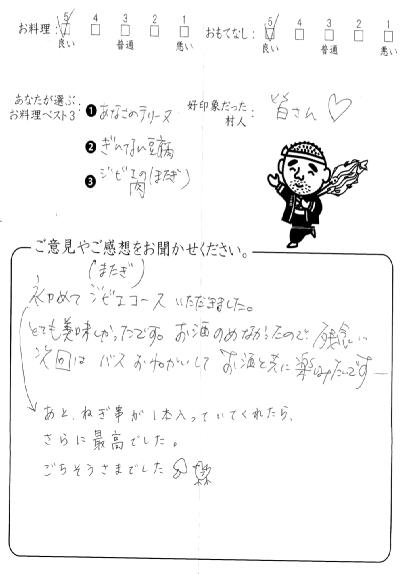 お料理: 5 4 3 2 1 おもてなし: 5 4 3 2 1
良い 普通 悪い 良い 普通 悪い
あなたが選ぶ
お料理ベスト3: ❶ あなごのテリーヌ 好印象だった 村人: 皆さん♡
❷ ぎんなん豆腐
❸ ジビエの肉(またぎ)
ご意見やご感想をお聞かせください。
(またぎ)
初めて ジビエコース いただきました。
とても美味しかったです。お酒のめなかったので 残念!!
次回は バス おねがいして お酒と共に 楽しみたいです―
あと、ねぎ串が1本入っていてくれたら、
さらに最高でした。
ごちそうさまでした